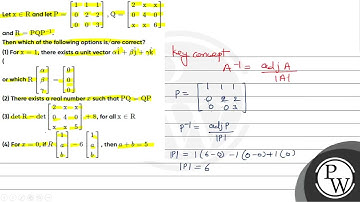 Let x ∈ R and let P = [1 1 1; 0 2 2; 0 0 3], Q = [2 x x; 0 4 0; x x 6]
and R = PQP⁻¹.
Then which of the following options is/are correct?
(1) For x = 1, there exists a unit vector αî + βĵ + γk̂
for which R [α; β; γ] = [0; 0; 0]
(2) There exists a real number x such that PQ = QP
(3) det R = det [2 x x; 0 4 0; x x 5] + 8, for all x ∈ R
(4) For x = 0, if R [1; a; b] = 6 [1; a; b], then a + b = 5
Key concept
A⁻¹ = adj A / |A|
P = [1 1 1; 0 2 2; 0 0 3]
P⁻¹ = adj P / |P|
|P| = 1(6-0) - 1(0-0) + 1(0)
|P| = 6
PW